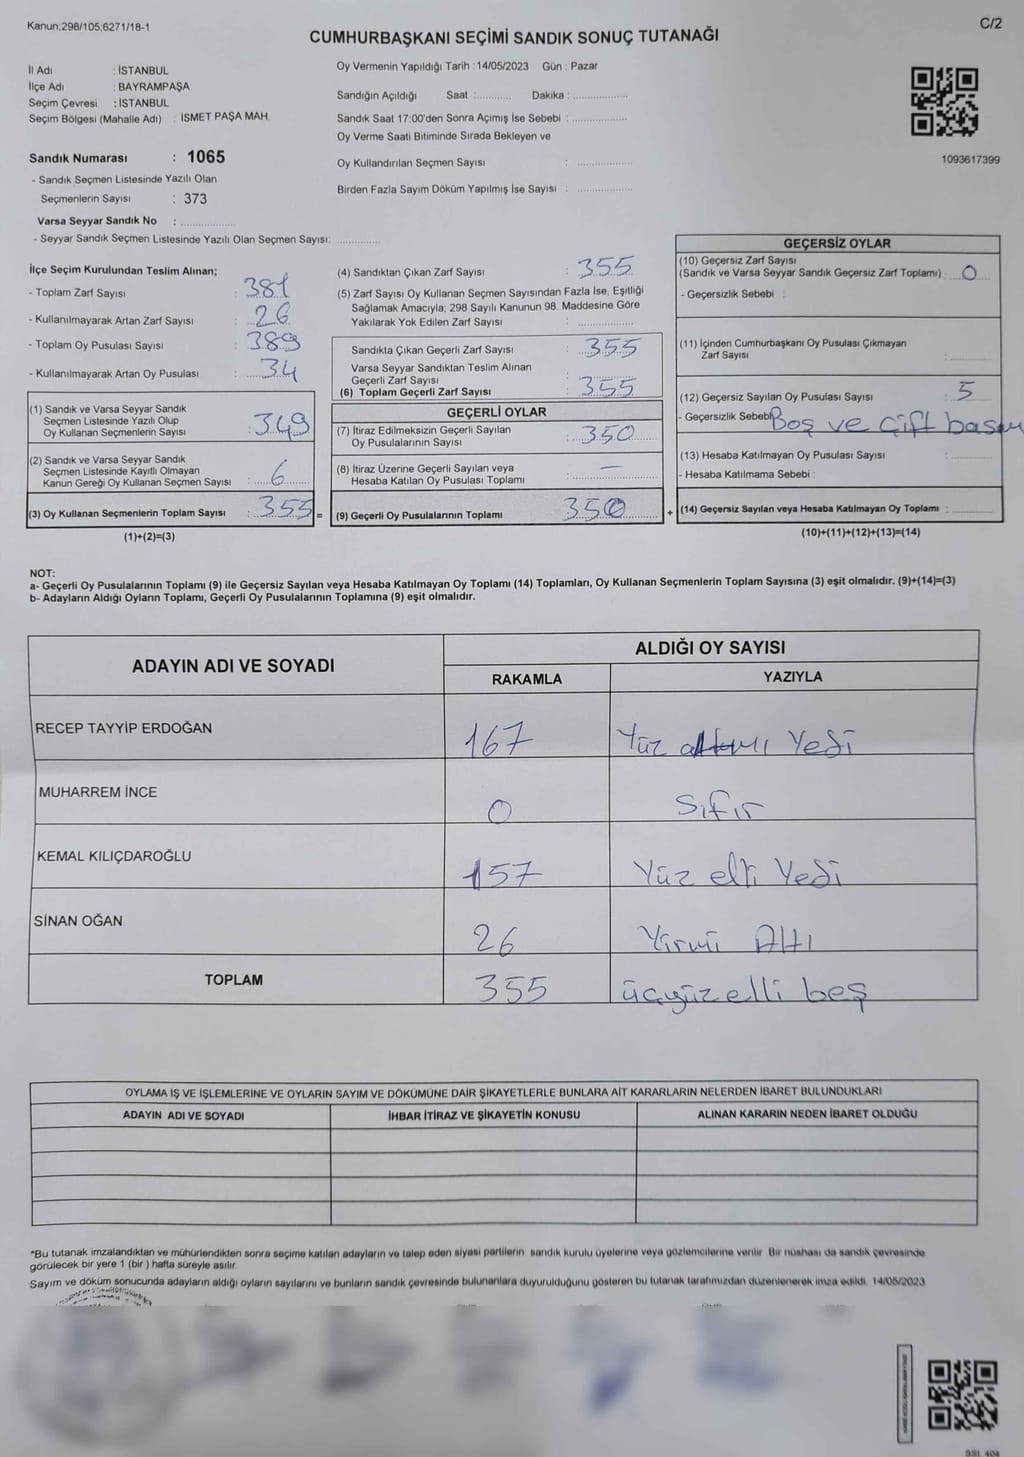 Kanun;298/105;6271/18-1
C/2
CUMHURBAŞKANI SEÇİMİ SANDIK SONUÇ TUTANAĞI
İl Adı : İSTANBUL
İlçe Adı : BAYRAMPAŞA
Seçim Çevresi : İSTANBUL
Seçim Bölgesi (Mahalle Adı) : İSMET PAŞA MAH.
Sandık Numarası : 1065
- Sandık Seçmen Listesinde Yazılı Olan
Seçmenlerin Sayısı : 373
Varsa Seyyar Sandık No : ..............
- Seyyar Sandık Seçmen Listesinde Yazılı Olan Seçmen Sayısı: ............
Oy Vermenin Yapıldığı Tarih : 14/05/2023 Gün : Pazar
Sandığın Açıldığı Saat :.......... Dakika : ..............
Sandık Saat 17:00'den Sonra Açımış İse Sebebi : ..............
Oy Verme Saati Bitiminde Sırada Bekleyen ve
Oy Kullandırılan Seçmen Sayısı : ..............
Birden Fazla Sayım Döküm Yapılmış İse Sayısı : ..............
1093617399
İlçe Seçim Kurulundan Teslim Alınan;
- Toplam Zarf Sayısı : 381
- Kullanılmayarak Artan Zarf Sayısı : 26
- Toplam Oy Pusulası Sayısı : 389
- Kullanılmayarak Artan Oy Pusulası : 34
(1) Sandık ve Varsa Seyyar Sandık
Seçmen Listesinde Yazılı Olup
Oy Kullanan Seçmenlerin Sayısı : 349
(2) Sandık ve Varsa Seyyar Sandık
Seçmen Listesinde Kayıtlı Olmayan
Kanun Gereği Oy Kullanan Seçmen Sayısı : 6
(3) Oy Kullanan Seçmenlerin Toplam Sayısı : 355 =
(1)+(2)=(3)
(4) Sandıktan Çıkan Zarf Sayısı : 355
(5) Zarf Sayısı Oy Kullanan Seçmen Sayısından Fazla İse, Eşitliği
Sağlamak Amacıyla; 298 Sayılı Kanunun 98. Maddesine Göre
Yakılarak Yok Edilen Zarf Sayısı : ..............
Sandıkta Çıkan Geçerli Zarf Sayısı : 355
Varsa Seyyar Sandıktan Teslim Alınan
Geçerli Zarf Sayısı : ..............
(6) Toplam Geçerli Zarf Sayısı : 355
GEÇERLİ OYLAR
(7) İtiraz Edilmeksizin Geçerli Sayılan
Oy Pusulalarının Sayısı : 350
(8) İtiraz Üzerine Geçerli Sayılan veya
Hesaba Katılan Oy Pusulası Toplamı : —
(9) Geçerli Oy Pusulalarının Toplamı : 350 +
GEÇERSİZ OYLAR
(10) Geçersiz Zarf Sayısı
(Sandık ve Varsa Seyyar Sandık Geçersiz Zarf Toplamı) : 0
- Geçersizlik Sebebi :
(11) İçinden Cumhurbaşkanı Oy Pusulası Çıkmayan
Zarf Sayısı : ..........
(12) Geçersiz Sayılan Oy Pusulası Sayısı : 5
- Geçersizlik Sebebi Boş ve Çift basım
(13) Hesaba Katılmayan Oy Pusulası Sayısı : ..........
- Hesaba Katılmama Sebebi :
(14) Geçersiz Sayılan veya Hesaba Katılmayan Oy Toplamı : ..........
(10)+(11)+(12)+(13)=(14)
NOT:
a- Geçerli Oy Pusulalarının Toplamı (9) ile Geçersiz Sayılan veya Hesaba Katılmayan Oy Toplamı (14) Toplamları, Oy Kullanan Seçmenlerin Toplam Sayısına (3) eşit olmalıdır. (9)+(14)=(3)
b- Adayların Aldığı Oyların Toplamı, Geçerli Oy Pusulalarının Toplamına (9) eşit olmalıdır.
ADAYIN ADI VE SOYADI
ALDIĞI OY SAYISI
RAKAMLA YAZIYLA
RECEP TAYYİP ERDOĞAN 167 Yüz altmış Yedi
MUHARREM İNCE 0 Sıfır
KEMAL KILIÇDAROĞLU 157 Yüz elli Yedi
SİNAN OĞAN 26 Yirmi Altı
TOPLAM 355 üçyüz elli beş
OYLAMA İŞ VE İŞLEMLERİNE VE OYLARIN SAYIM VE DÖKÜMÜNE DAİR ŞİKAYETLERLE BUNLARA AİT KARARLARIN NELERDEN İBARET BULUNDUKLARI
ADAYIN ADI VE SOYADI İHBAR İTİRAZ VE ŞİKAYETİN KONUSU ALINAN KARARIN NEDEN İBARET OLDUĞU
*Bu tutanak imzalandıktan ve mühürlendikten sonra seçime katılan adayların ve talep eden siyasi partilerin sandık kurulu üyelerine veya gözlemcilerine verilir. Bir nüshası da sandık çevresinde
görülecek bir yere 1 (bir ) hafta süreyle asılır.
Sayım ve döküm sonucunda adayların aldığı oyların sayılarını ve bunların sandık çevresinde bulunanlara duyurulduğunu gösteren bu tutanak tarafımızdan düzenlenerek imza edildi. 14/05/2023